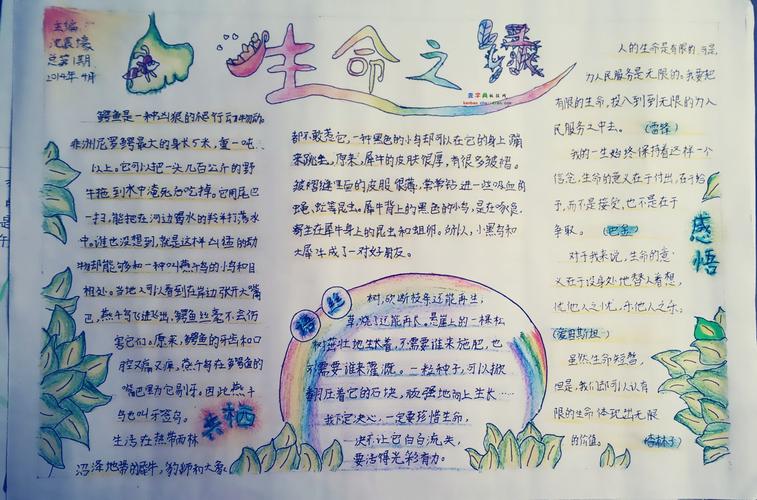 主编
总第1期
2014年4月
生命之
查字典板报网
鳄鱼是一种凶狠的爬行动物
非洲尼罗鳄最大的身长5米，重一吨
以上。它可以把一头几百公斤的野
牛拖到水中淹死后吃掉。它用尾巴
一扫，能把在河边喝水的羚羊打落水
中。谁也没想到，就是这样凶猛的动
物却能够和一种叫燕千鸟的小鸟和目
相处。当地人可以看到在岸边张开大嘴
巴，燕千鸟飞进飞出，鳄鱼丝毫不会伤
害它们。原来，鳄鱼的牙齿和口
腔又痛又痒，燕千鸟在鳄鱼的
嘴巴里为它剔牙。因此燕千
鸟也叫牙签鸟。
生活在热带雨林
沼泽地带的犀牛，豹狮和大象
共栖
都不敢惹它，一种黑色的小鸟却可以在它的身上蹦
来跳去。原来，犀牛的皮肤很厚，有很多皱褶。
皱褶缝里的皮服很薄，常常钻进一些吸血的
蝇，虻等昆虫。犀牛背上的黑色的小鸟，是在啄食
寄生在犀牛身上的昆虫和蛆卵。所以，小黑鸟和
大犀牛成了一对好朋友。
树，砍断枝条还能再生，
草，烧了还能再长，悬崖上的一棵松
和茁壮地生长着，不需要谁来施肥，也
不需要谁来灌溉。一粒种子，可以掀
翻压着它的石块，顽强地向上生长……
我下定决心，一定要珍惜生命，
决不让它白白流失，
要活得光彩有力。
人的生命是有限的，可是，
为人民服务是无限的。我要把
有限的生命，投入到到无限的为人
民服务之中去。（雷锋）
我的一生始终保持着这样一个
信念，生命的意义在于付出，在于给
予，而不是接受，也不是在于
争取。（巴金）
对于我来说，生命的意
义在于设身处地替人着想，
忧他人之忧，乐他人之乐。
（爱因斯坦）
虽然生命短暂，
但是，我们却可以让有
限的生命体现出无限
的价值。（杏林子）
感悟